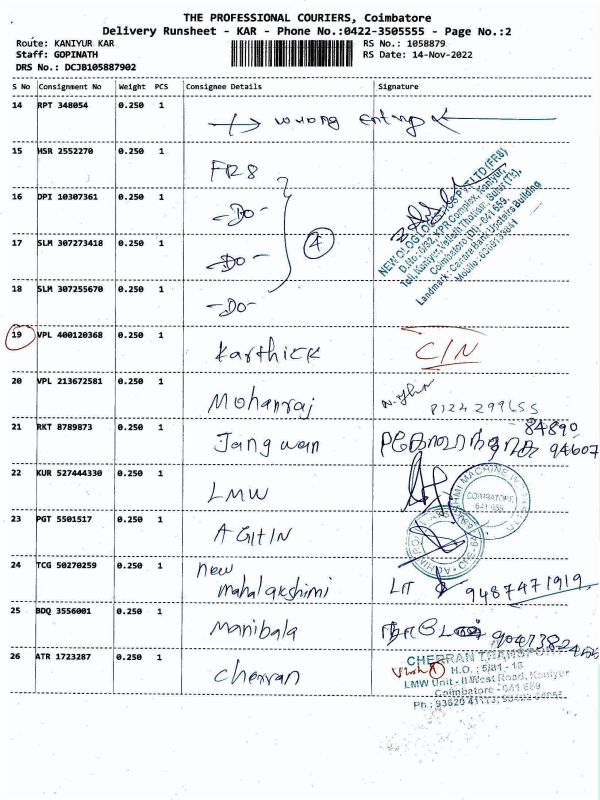 THE PROFESSIONAL COURIERS, Coimbatore
Delivery Runsheet - KAR - Phone No.:0422-3505555 - Page No.:2
Route: KANIYUR KAR
RS No.: 1058879
Staff: GOPINATH
RS Date: 14-Nov-2022
DRS No.: DCJB105887902
S No Consignment No Weight PCS Consignee Details Signature
14 RPT 348054 0.250 1 wrong entry
15 HSR 2552270 0.250 1 FR8
16 DPI 10307361 0.250 1 -Do-
17 SLM 307273418 0.250 1 -Do- 4
18 SLM 307255670 0.250 1 -Do-
NEW OLOG LOGISTICS PVT LTD (FR8)
D.No: 6/52, KPR Complex, Kaniyur,
Coimbatore (Dt) - 641 659.
Landmark: Canara Bank Upstairs Building
19 VPL 400120368 0.250 1 Karthick C/N
20 VPL 213672581 0.250 1 Mohanraj
21 RKT 8789873 0.250 1 Jangwan 84890
94607
22 KUR 527444330 0.250 1 LMW
COIMBATORE
23 PGT 5501517 0.250 1
24 TCG 50270259 0.250 1 New
mahalakshimi 9487471919
25 BDQ 3556001 0.250 1 Manibala
26 ATR 1723287 0.250 1 Cherran
CHERRAN TRANSPORT
H.O. : 5/81 - 18
LMW Unit - II West Road, Kaniyur
Coimbatore - 641 659